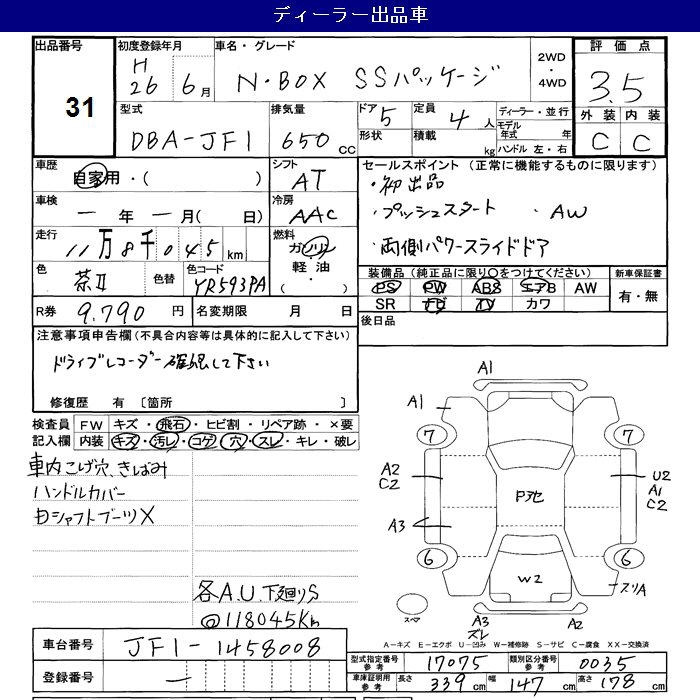 ディーラー出品車
出品番号 31
初度登録年月 H26 6月
車名・グレード N・BOX SSパッケージ
2WD・4WD
評価点 3.5
型式 DBA-JF1
排気量 650 cc
ドア 5
形状
定員 4人
積載 kg
ディーラー・並行
モデル年式 年
ハンドル 左・右
外装 C
内装 C
車歴 自家用・( )
シフト AT
車検 ー年ー月( 日)
冷房 AAC
走行 11万8千045km
燃料 ガソリン 軽油・( )
色 茶II
色替
色コード YR593PA
R券 9,790円
名変期限 月 日
セールスポイント(正常に機能するものに限ります)
・初出品
・プッシュスタート ・AW
・両側パワースライドドア
装備品(純正品に限り○をつけてください)
PS PW ABS エアB AW
SR ナビ TV カワ
新車保証書
有・無
後日品
注意事項申告欄(不具合内容等は具体的に記入して下さい)
ドライブレコーダー確認して下さい
修復歴 有〔箇所 〕
検査員記入欄
FW キズ・飛石・ヒビ割・リペア跡・×要
内装 キズ・汚レ・コゲ・穴・スレ・キレ・破レ
車内こげ穴、きばみ
ハンドルカバー
DシャフトブーツX
各A.U 下廻りS
@118045Km
A1
A1
7 7
A2
C2
U2
A1
C2
Pﾀﾋ
A3
6 6
W2
スリA
スペア
A3
ズレ
A2
A-キズ E-エクボ U-凹み W-補修跡 S-サビ C-腐食 XX-交換済
車台番号 JF1-1458008
登録番号 ー
型式指定番号 参考 17075
類別区分番号 参考 0035
車庫証明用 参考 長さ 339cm 幅 147cm 高さ 178cm